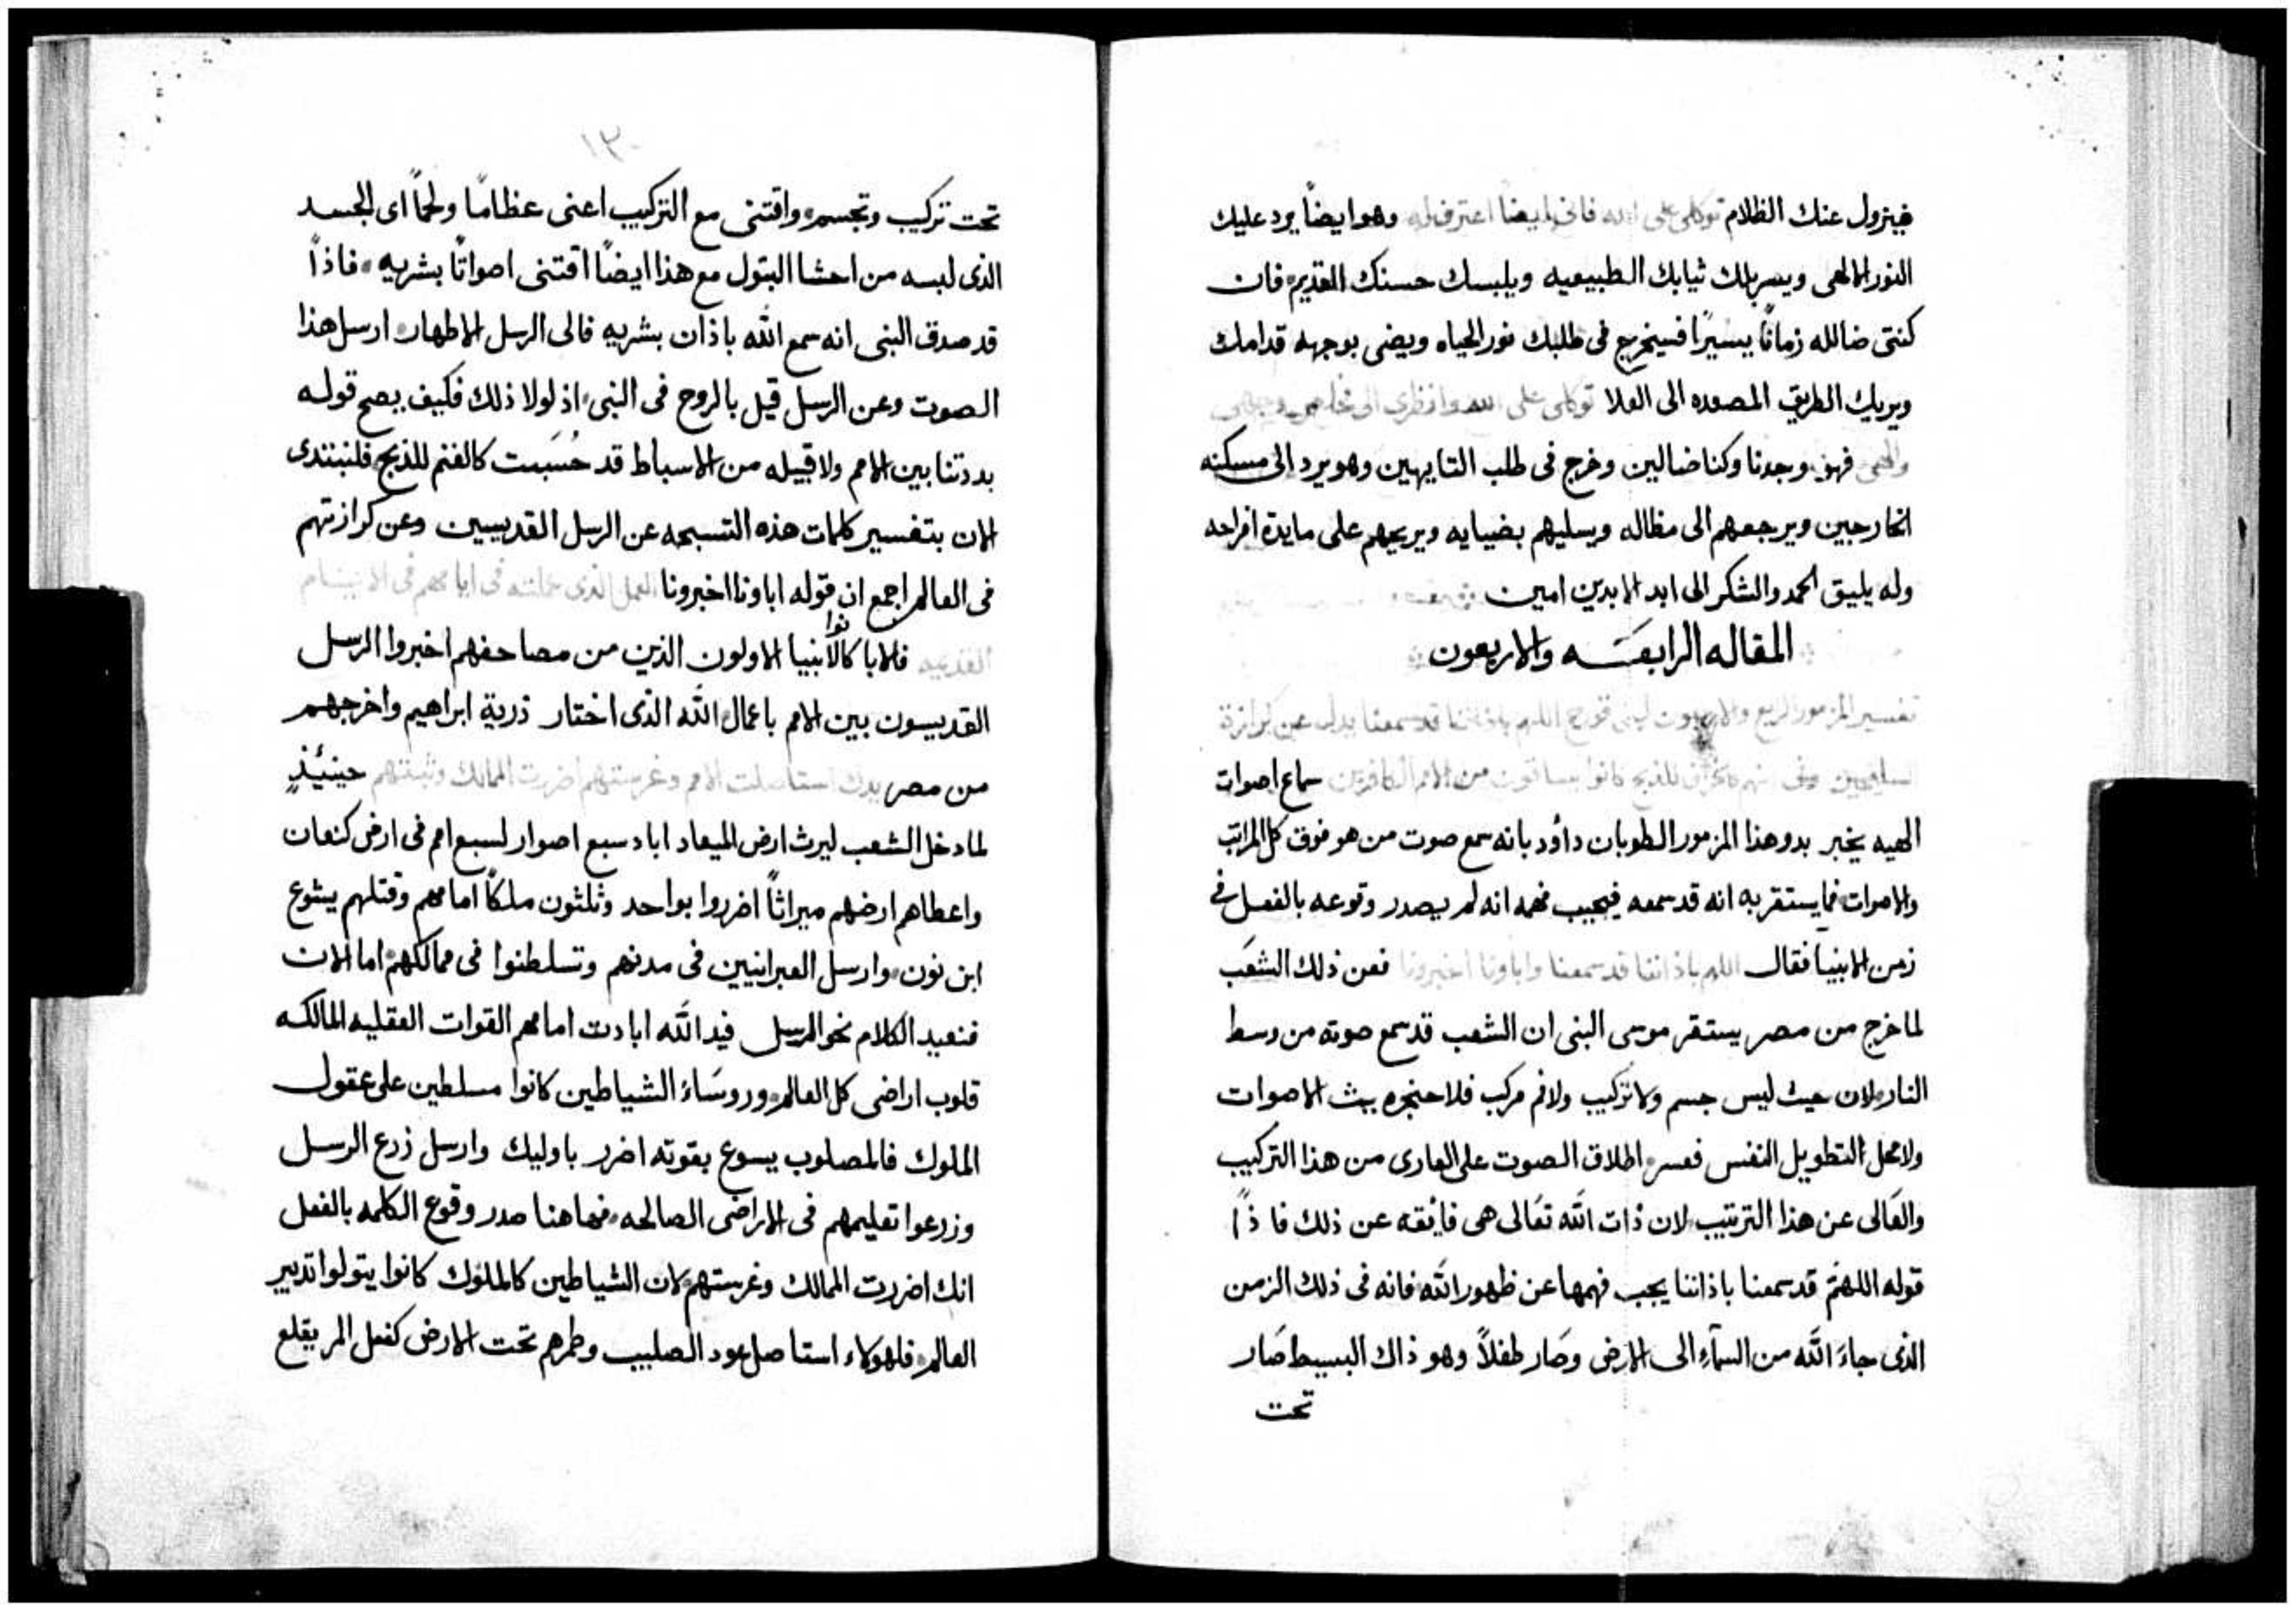 فيزول عنك الظلام توكلى على الله فانى ايضا اعترف له وهو ايضاً يرد عليك
النور الالهى ويسربلك ثيابك الطبيعيه ويلبسك حسنك القديم فان
كنتى ضالله زماناً يسيراً فسيخرج فى طلبك نور الحياه ويضى بوجهه قدامك
ويريك الطريق المصعده الى العلا توكلى على الله وانظرى الى مخلصى وجهى
والهى فهو وجدنا وكنا ضالين وخرج فى طلب التايهين وهو يرد الى مسكنه
الخارجين ويرجعهم الى مظاله ويسليهم بضيايه ويريحهم على مايدة افراحه
وله يليق الحمد والشكر الى ابد الابدين امين
المقاله الرابعَـه والاربعون
تفسير المزمور الربع والاربعون لبنى قورح اللهم باذاننا قد سمعنا يدل عن كرازة
كانوا يساقون من الامم الكافرين سماع اصوات
الهيه يخبر بدو هذا المزمور الطوبان داؤد بانه سمع صوت من هو فوق كل المراتب
والاصوات فما يستقر به انه قد سمعه فيجيب فهمه انه لم يصدر وقوعه بالفعل فى
زمن الانبيا فقال اللهم باذاننا قد سمعنا واباونا اخبرونا فعن ذلك الشعَب
لما خرج من مصر يستقر موسى النبى ان الشعب قد سمع صوته من وسط
النار لان حيث ليس جسم ولا تركيب ولا فم مركب فلا حنجره يبث الاصوات
ولا محل التطويل النفس فعسر اطلاق الصوت على العارى من هذا التركيب
والعَالى عن هذا الترتيب لان ذات الله تعَالى هى فايقه عن ذلك فاذاً
قوله اللهمَ قد سمعنا باذاننا يجب فهمها عن ظهور الله فانه فى ذلك الزمن
الذى جاءَ الله من السمآءِ الى الارض وصَار طفلاً وهو ذاك البسيط صَار
تحت
١٣٠
تحت تركيب وتجسم واقتنى مع التركيب اعنى عظاماً ولحماً اى الجسد
الذى لبسه من احشا البتول مع هذا ايضاً اقتنى اصواتاً بشريه فاذاً
قد صدق النبى انه سمع الله باذان بشريه فالى الرسل الاطهار ارسل هذا
الصوت وعن الرسل قيل بالروح فى النبى اذ لولا ذلك فكيف يصح قوله
بددتنا بين الامم ولا قبيله من الاسباط قد حُسَبت كالغنم للذبح فلنبتدى
الان بتفسير كلمات هذه التسبحه عن الرسل القديسين وعن كرازتهم
فى العالم اجمع ان قوله اباونا اخبرونا العمل الذى عملته فى ايامهم فى الايام
القديمه فالابا كانوا الانبيا الاولون الذين من مصاحفهم اخبروا الرسل
القديسون بين الامم باعمال الله الذى اختار ذرية ابراهيم واخرجهم
من مصر يدك استاصلت الامم وغرستهم اضررت الممالك وثبتهم حينئذٍ
لما دخل الشعب ليرث ارض الميعاد اباد سبع اصوار لسبع امم فى ارض كنعان
واعطاهم ارضهم ميراثاً اضرروا بواحد وثلثون ملكاً امامهم وقتلهم يشوع
ابن نون وارسل العبرانيين فى مدنهم وتسلطنوا فى ممالكهم اما الان
فنعيد الكلام نحو الرسل فيد الله ابادت امامهم القوات العقليه المالكه
قلوب اراضى كل العالم وروسَاءَ الشياطين كانوا مسلطين على عقول
الملوك فالمصلوب يسوع بقوته اضرر باوليك وارسل زرع الرسل
وزرعوا تعليمهم فى الاراضى الصالحه فهاهنا صدر وقوع الكلمه بالفعل
انك اضررت الممالك وغرستهم لان الشياطين كالملوك كانوا يتولوا تدبير
العالم فلهولاء استاصل عود الصليب وطمرهم تحت الارض كفعل المر يقلع